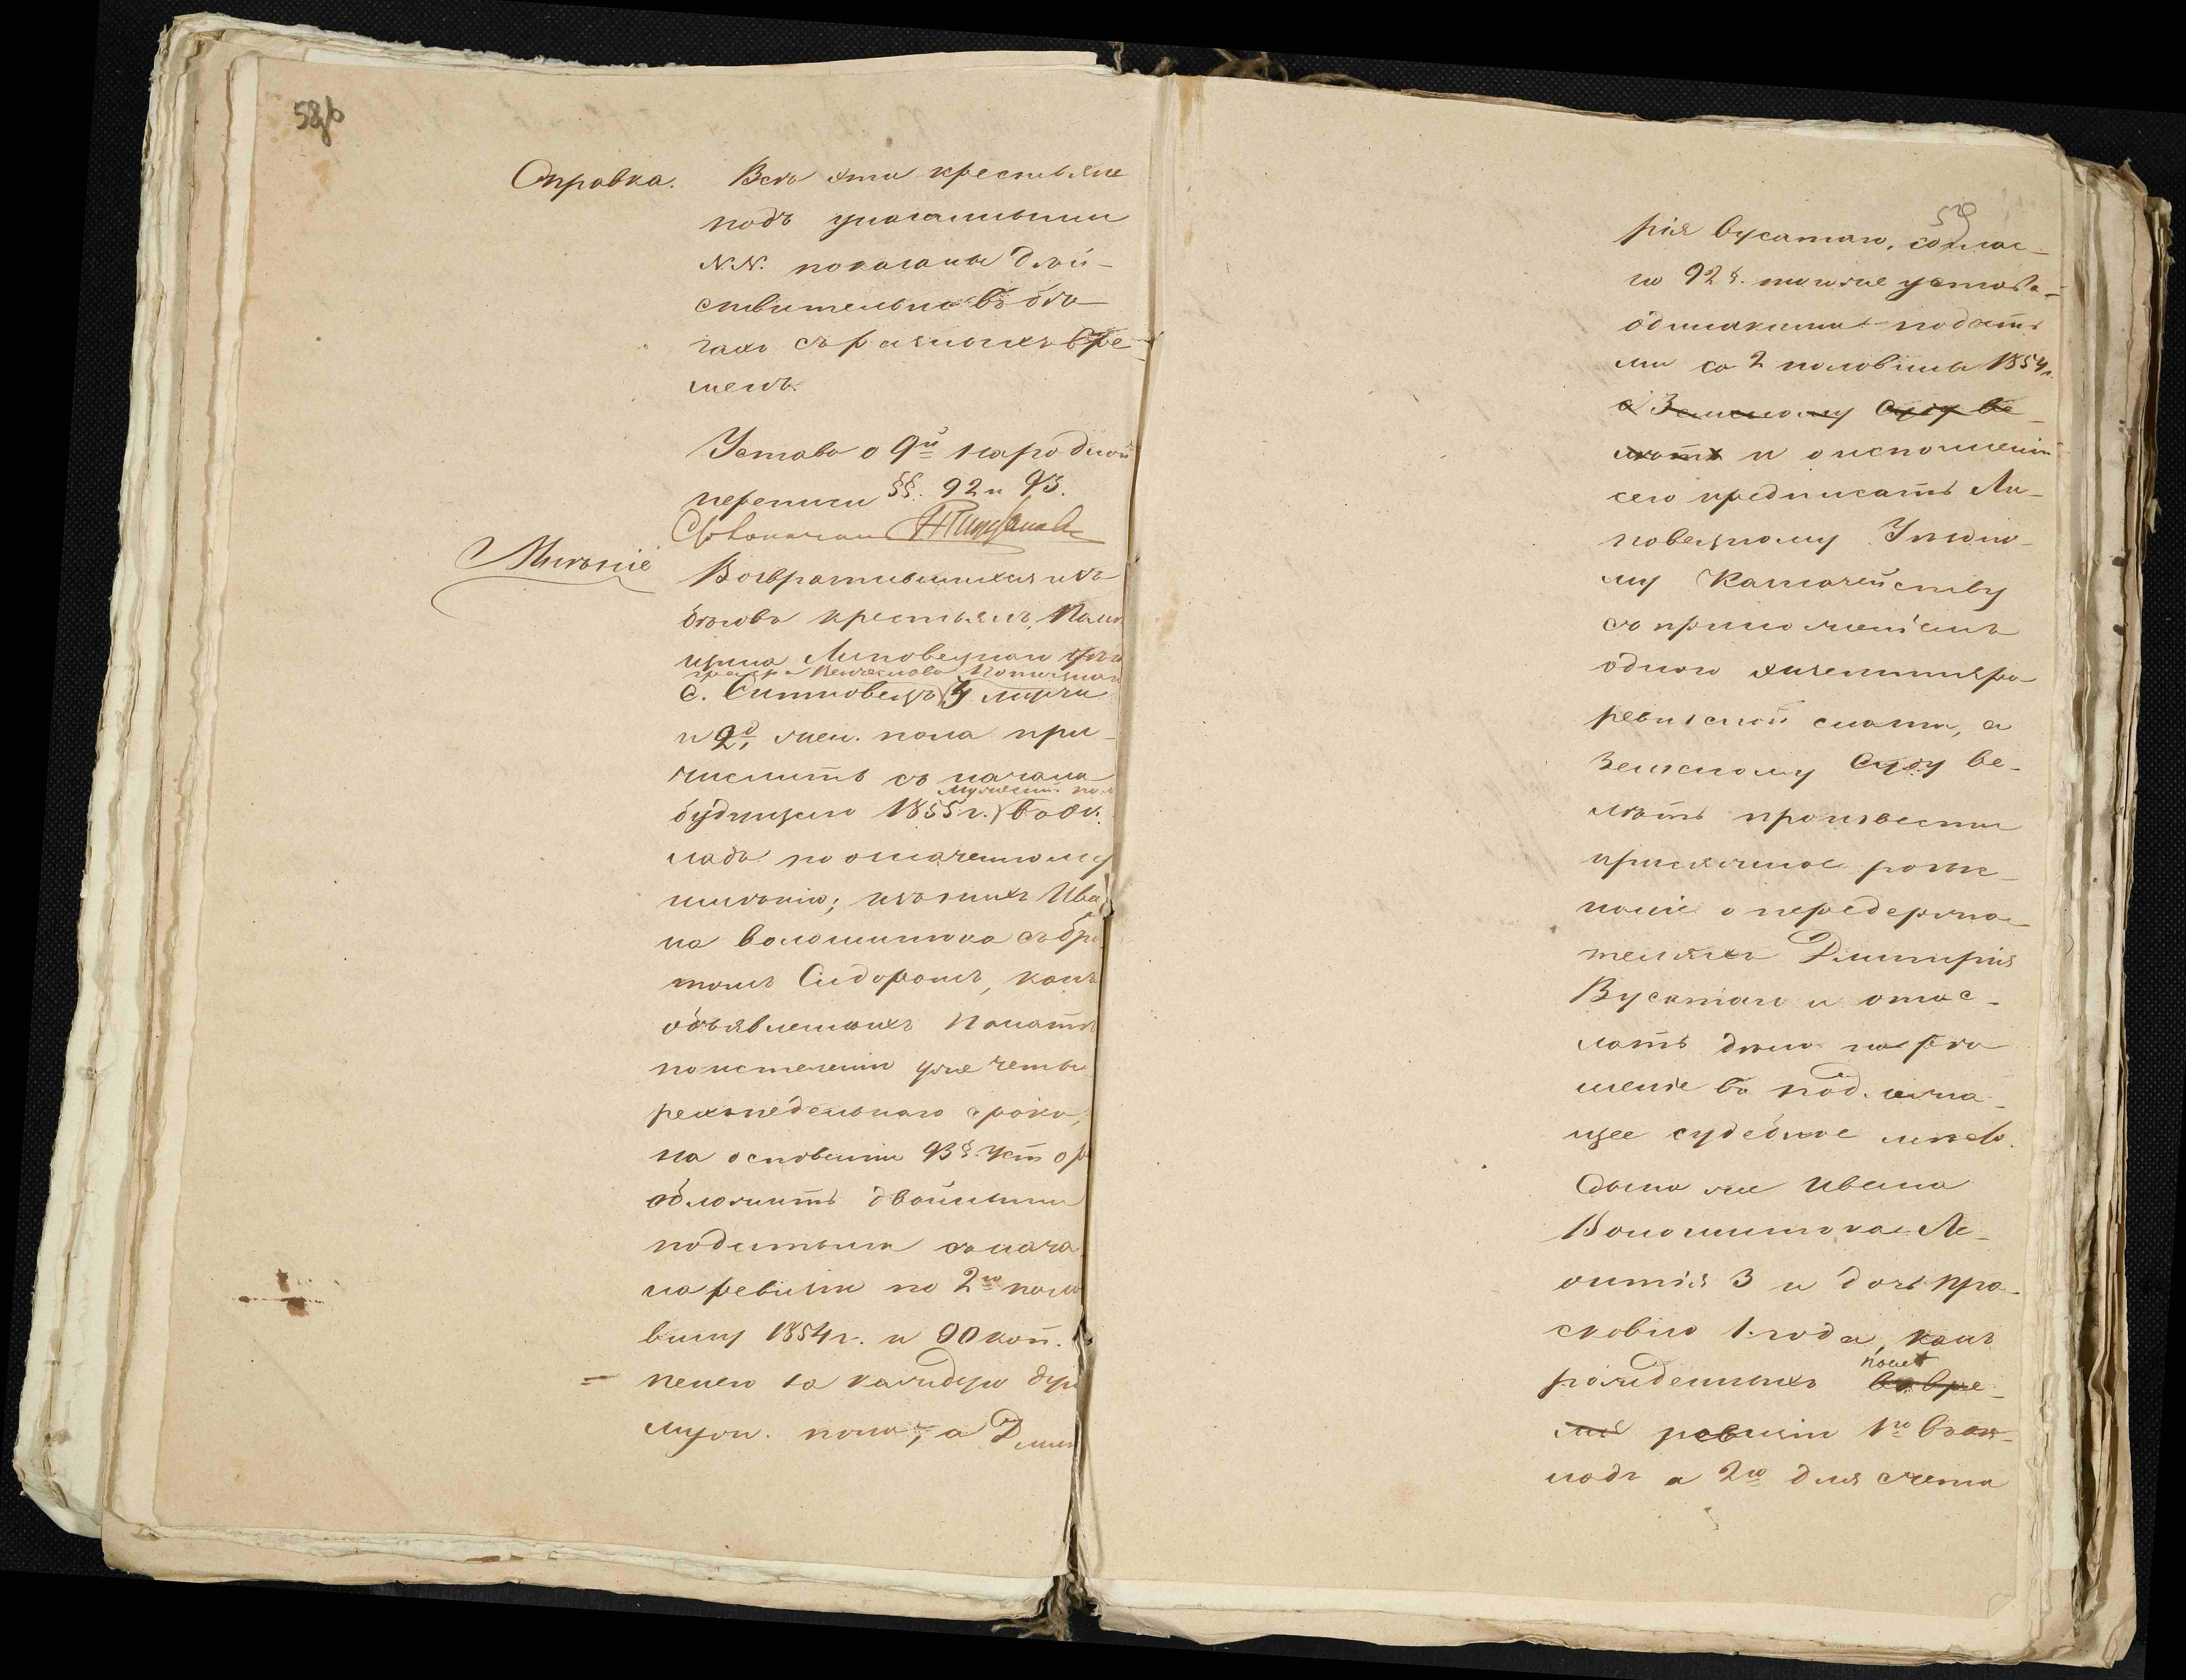 58об
Справка. Всѣ эти крестьяне
подъ указанными
N.N. показаны дѣй-
ствительно въ бѣ-
гахъ съ разныхъ вре-
менъ.
Уставъ о 9й народной
переписи §§. 92 и 93.
Мнѣніе
Возвратившихся изъ
бѣговъ крестьянъ, Поми
щика Липовецкаго уѣзд
с. Ситковецъ 4 мужч
и 2, жен. пола при-
числить съ начала
мужеск. пол
будущаго 1855 г. въ ок-
ладъ по означенному
имѣнію; изъ нихъ Ива
на Волошинюка съ бра
томъ Сидоромъ, какъ
объявленныхъ Палатѣ
по истеченіи уже четы-
рехнедельнаго срока,
на основаніи 93 §. Уст о р
обложить двойными
податьми съ нача
ла ревизіи по 2ю поло
вину 1854 г. и 90 коп.
пенею за каждую душ
муж. пола, а Дмит
59
рія Вусатаго, соглас-
но 92 §. того же устава
одинакими податя
ми со 2 половины 1854 г.
а Земскому Суду ве-
лѣть и о исполненіи
сего предписать Ли-
повецкому Уѣздно-
му Казначейству
съ приложеніемъ
одного экземпляра
ревизской сказки, а
Земскому Суду ве-
лѣть произвести
присяжное розыс-
каніе о передержа-
теляхъ Дмитрія
Вусатаго и отос-
лать дѣло на рѣ-
шеніе въ подлежа-
щее судебное мѣсто.
Сына же Ивана
Волошинюка Ле-
онтія 3 и дочь Пра-
сковію 1. года, какъ
послѣ
рожденныхъ во вре-
мя ревизіи 1го въ ок-
ладъ а 2ю для счета